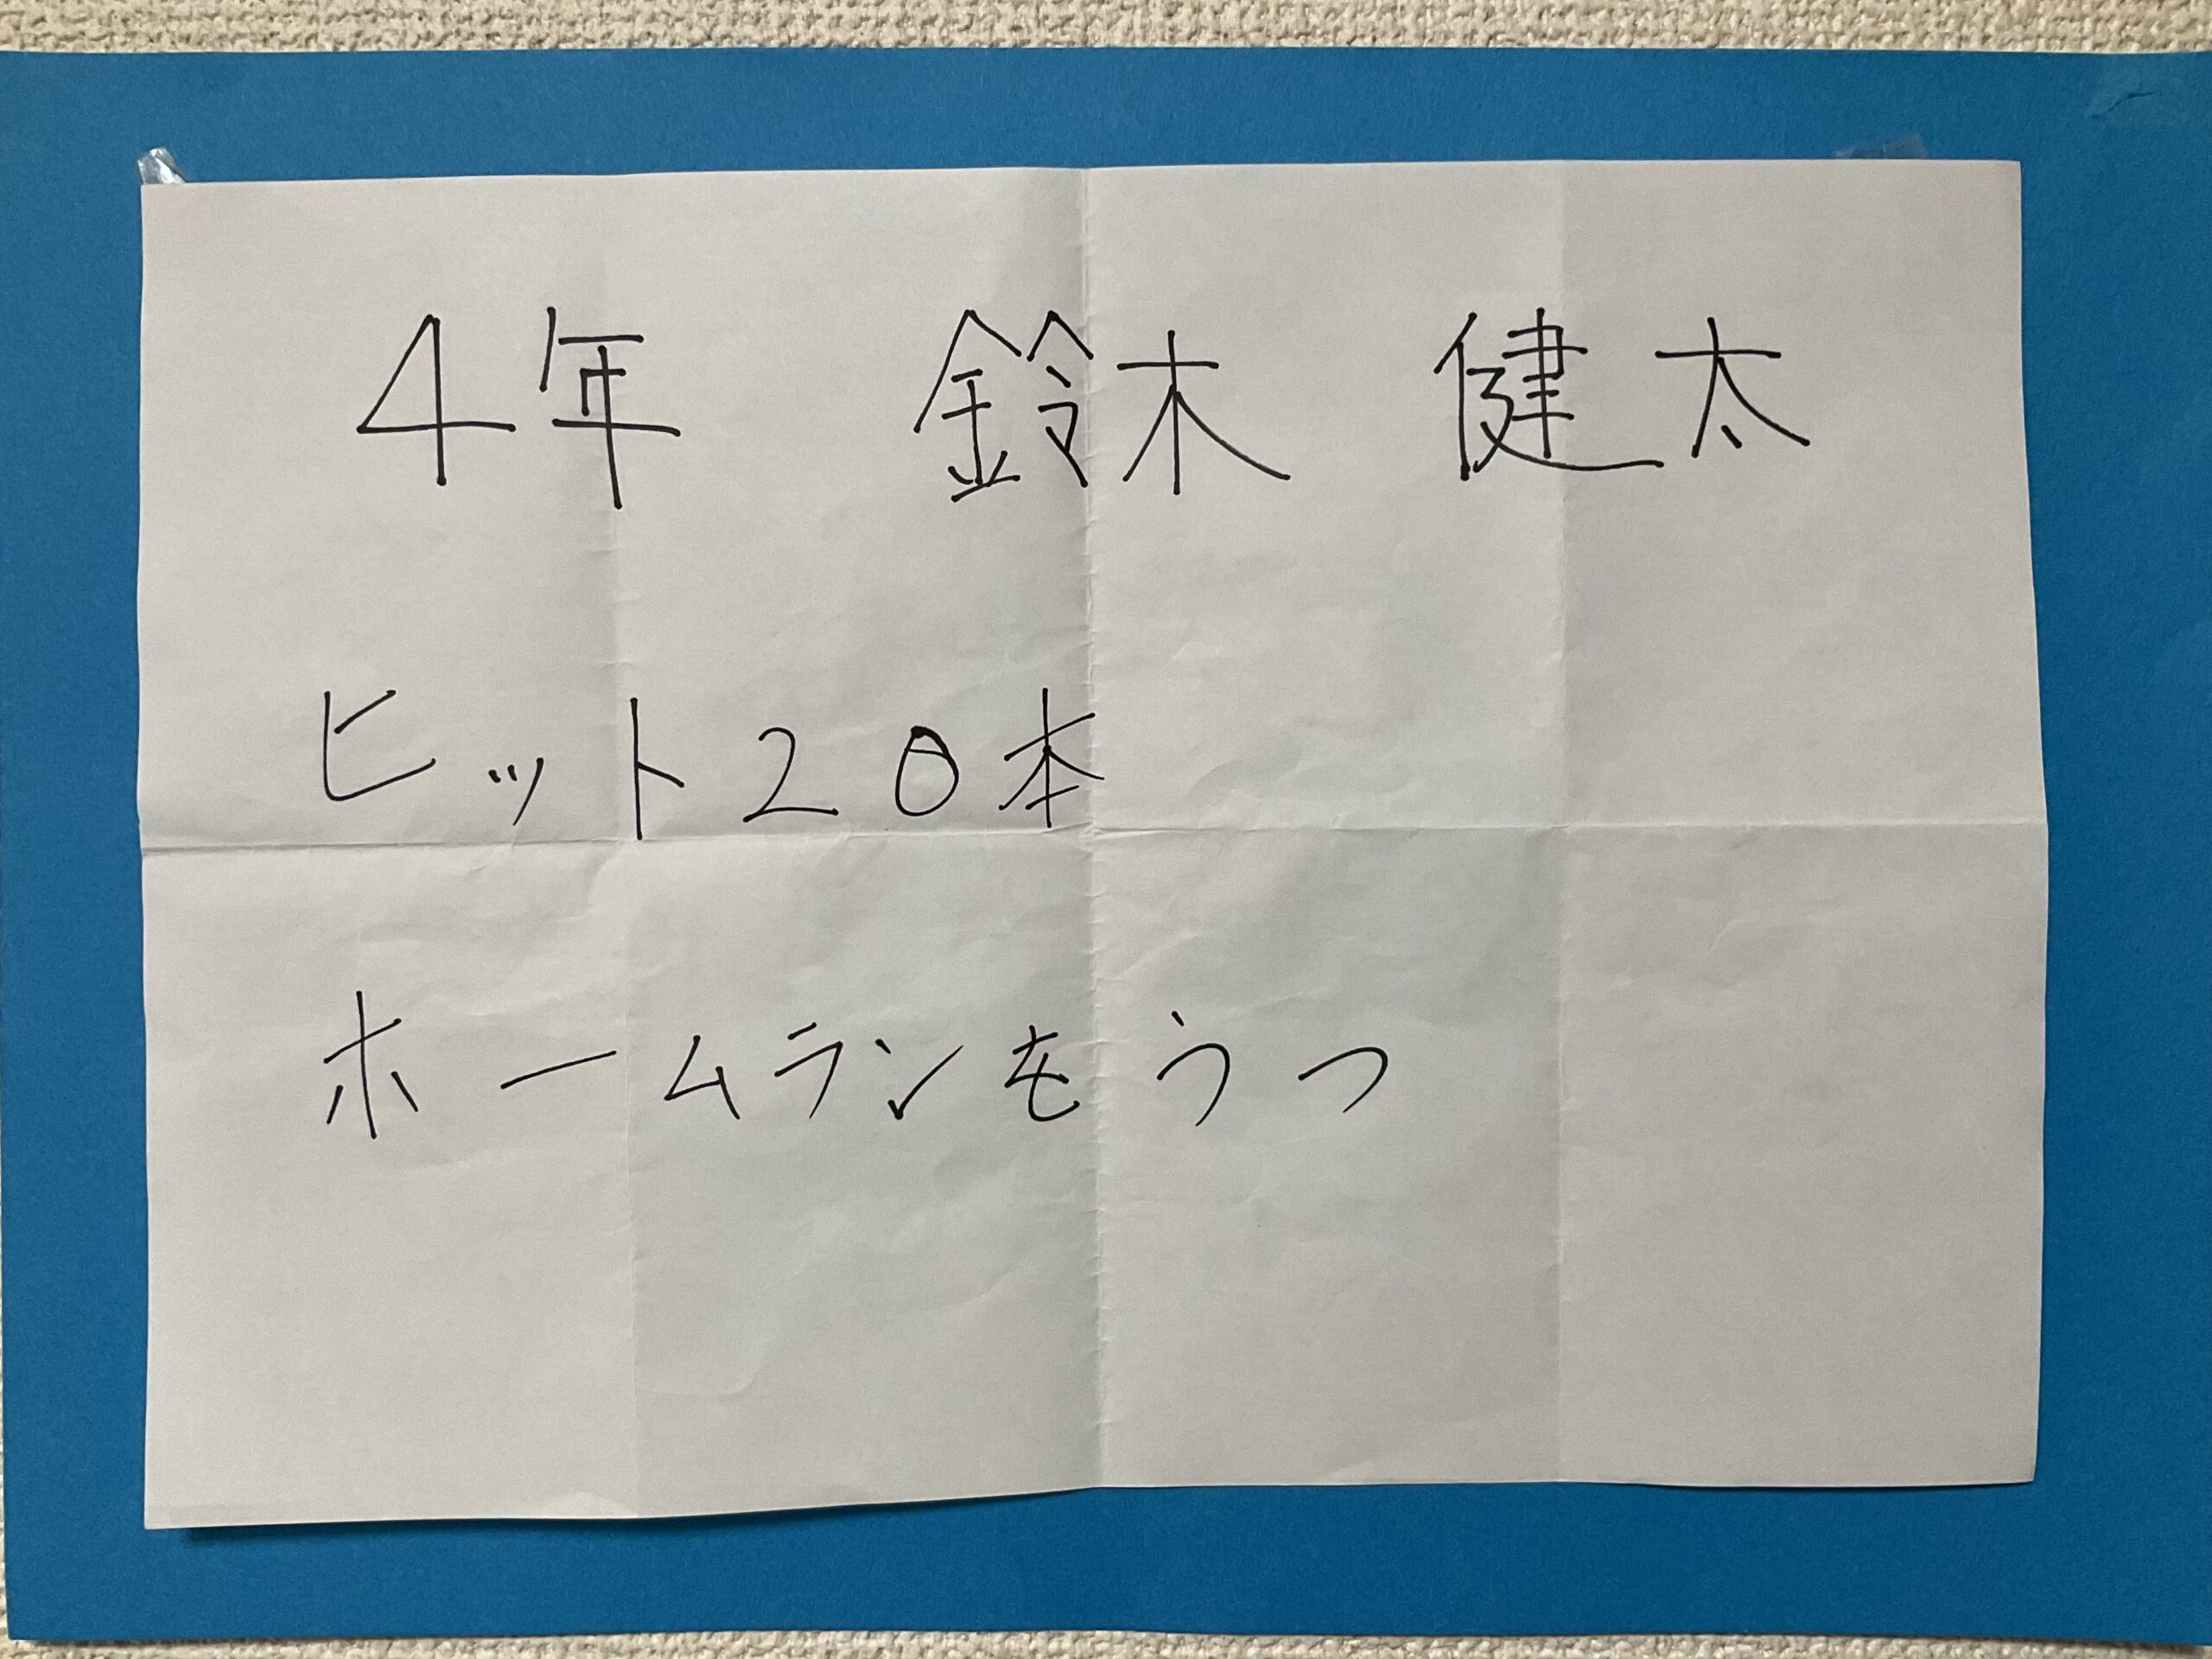 4年 鈴木 健太
ヒット20本
ホームランをうつ